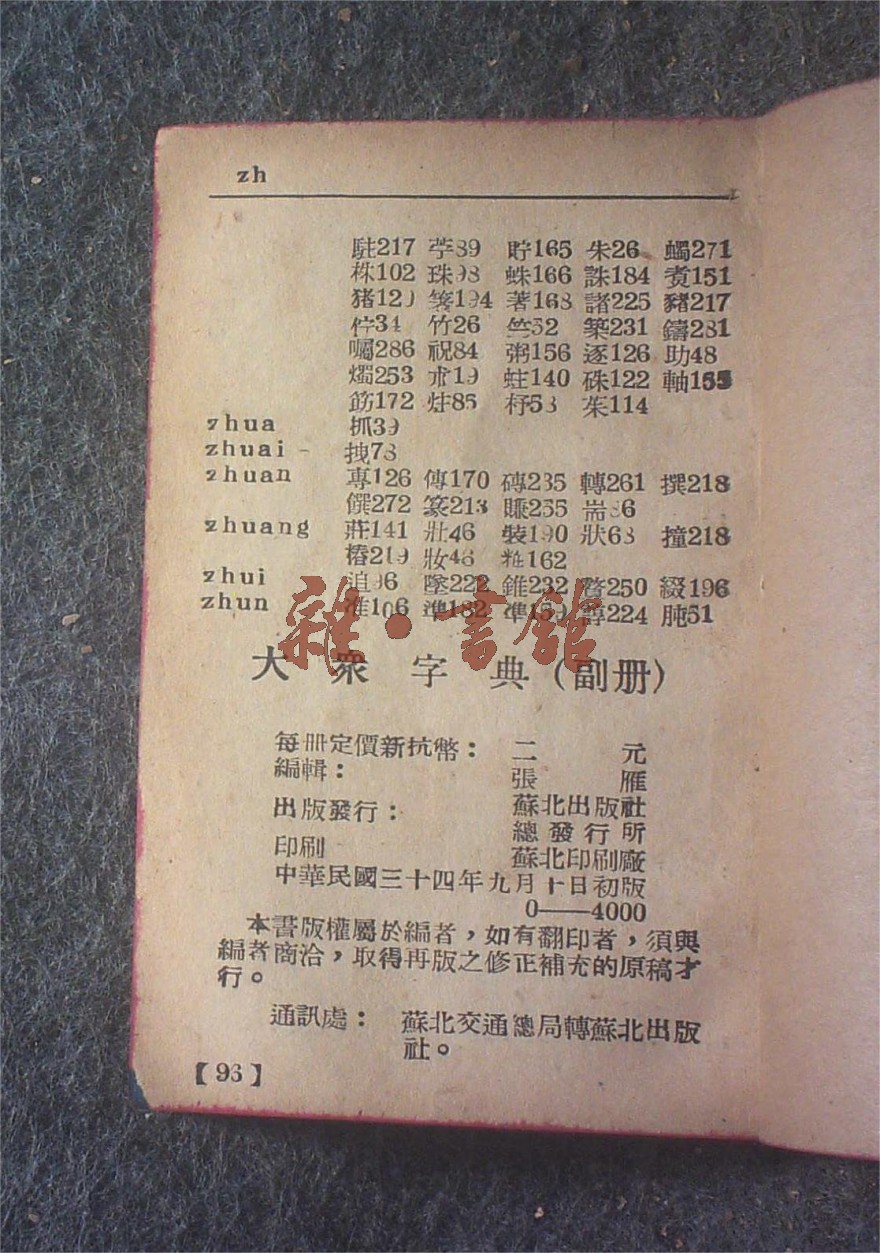 zh
駐217 苧89 貯165 朱26 蠋271
株102 珠98 蛛166 誅184 煑151
猪12 箋194 著168 諸225 豬217
佇34 竹26 竺52 築231 鑄281
囑286 祝84 粥156 逐126 助48
燭253 朮19 蛀140 硃122 軸155
筯172 炷85 杼53 茱114
zhua 抓39
zhuai 拽78
zhuan 專126 傳170 磚235 轉261 撰218
饌272 篆213 賺255 耑86
zhuang 莊141 壯46 裝190 狀68 撞218
樁219 妝46 粧162
zhui 追96 墜222 錐232 贅250 綴196
zhun 准106 準182 凖159 諄224 肫51
雜·書館
大衆字典(副册)
每册定價新抗幣： 二元
編輯： 張雁
出版發行： 蘇北出版社
總發行所
印刷 蘇北印刷廠
中華民國三十四年九月十日初版
0——4000
本書版權屬於編者，如有翻印者，須與
編者商洽，取得再版之修正補充的原稿才
行。
通訊處： 蘇北交通總局轉蘇北出版
社。
【96】